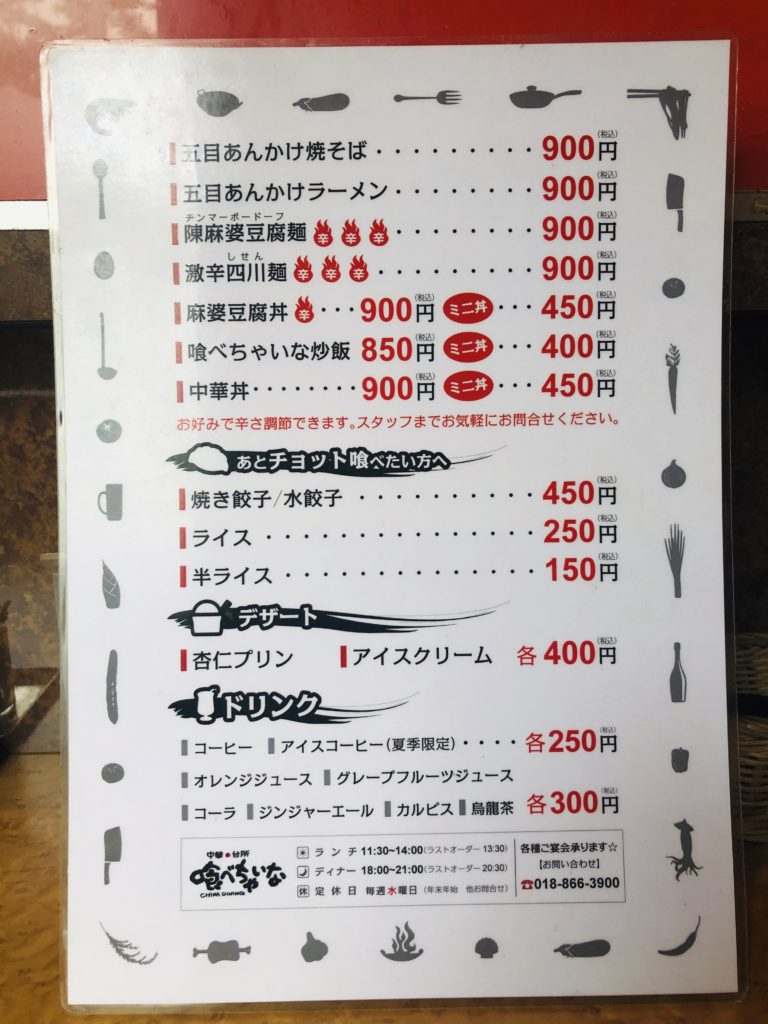 五目あんかけ焼そば・・・・・・・・・900円(税込)
五目あんかけラーメン・・・・・・・・900円(税込)
チンマーボードーフ
陳麻婆豆腐麺 辛 辛 辛・・・・・・・・900円(税込)
しせん
激辛四川麺 辛 辛 辛・・・・・・・・・900円(税込)
麻婆豆腐丼 辛・・・900円(税込) ミニ丼・・・450円(税込)
喰べちゃいな炒飯 850円(税込) ミニ丼・・・400円(税込)
中華丼・・・・・・・・900円(税込) ミニ丼・・・450円(税込)
お好みで辛さ調節できます。スタッフまでお気軽にお問合せください。
あとチョット喰べたい方へ
焼き餃子/水餃子・・・・・・・・・・450円(税込)
ライス・・・・・・・・・・・・・・250円(税込)
半ライス・・・・・・・・・・・・・150円(税込)
デザート
杏仁プリン アイスクリーム 各400円(税込)
ドリンク
コーヒー アイスコーヒー(夏季限定)・・・・各250円(税込)
オレンジジュース グレープフルーツジュース
コーラ ジンジャーエール カルピス 烏龍茶 各300円(税込)
中華●台所
喰べちゃいな
CHINA DINING
ランチ 11:30~14:00(ラストオーダー 13:30)
ディナー 18:00~21:00(ラストオーダー 20:30)
休 定休日 毎週水曜日(年末年始 他お問合せ)
各種ご宴会承ります☆
【お問い合わせ】
☎018-866-3900